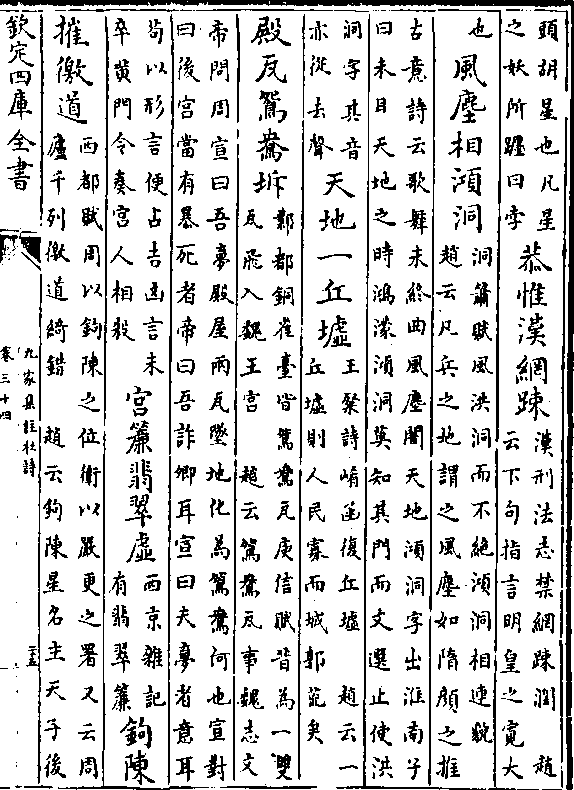 頭胡星也凡星
之妖所躔曰孛
恭惟漢網疎
漢刑法志禁網疎濶 趙
云下句指言明皇之寛大
也
風塵相澒洞
洞簫賦風洪洞而不絶澒洞相連貌
趙云凡兵之地謂之風塵如隋顔之推
古意詩云歌舞未終曲風塵闇天地澒洞字出淮南子
曰未目天地之時鴻濛澒洞莫知其門而文選止使洪
洞字其音
亦從去聲
天地一丘墟
王粲詩崤函復丘墟 趙云一
丘墟則人民寡而城郭荒矣
殿瓦鴛鴦拆
鄴都銅雀臺皆鴛鴦瓦庾信賦昔為一雙
瓦飛入魏王宫 趙云鴛鴦瓦事魏志文
帝問周宣曰吾夢殿屋兩瓦墜地化為鴛鴦何也宣對
曰後宫當有暴死者帝曰吾詐卿耳宣曰夫夢者意耳
苟以形言便占吉凶言未
卒黄門令奏宫人相殺
宫簾翡翠虚
西京雜記
有翡翠簾
鉤陳
摧徼道
西都賦周以鉤陳之位衛以嚴更之署又云周
廬千列徼道綺錯 趙云鉤陳星名主天子後
欽定四庫全書
九家集註杜詩
卷三十四